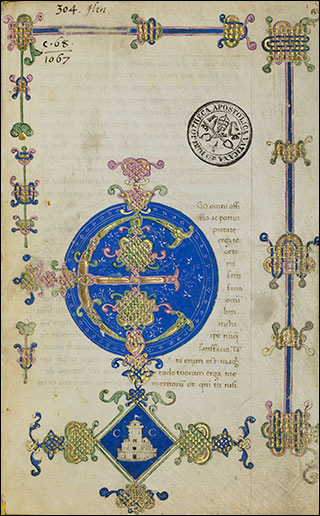 304.
C. 68.
1067
BIBLIOTHECA APOSTOLICA VATICANA
EGO omni offi
tio ac potius
pietate
erga te
cete
ris
satis
facio
omni
bus
mihi
ipe nūq̄
satisfatio. Tā
ta enim est mag
tudo tuorum erga me
meritorū ut
C C